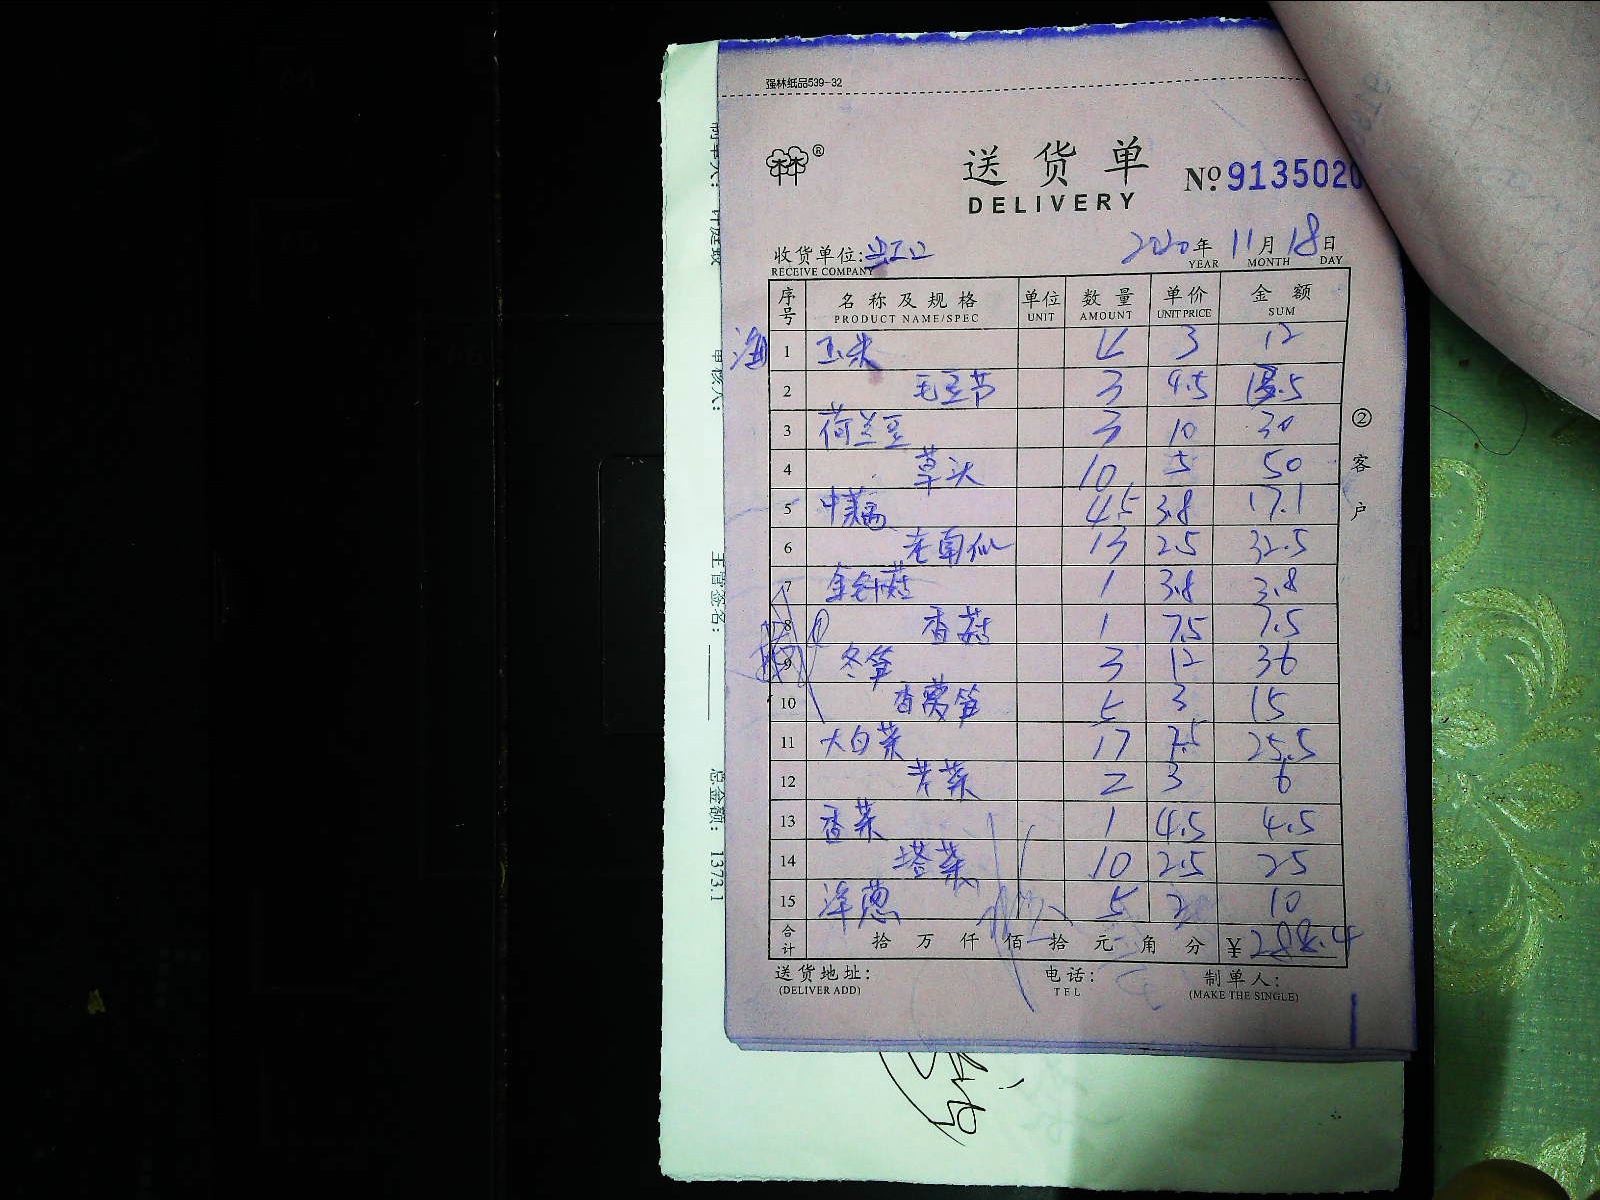 强林纸品539-32
送货单
DELIVERY
No. 9135020
收货单位:
RECEIVE COMPANY
2020年 11月 18日
YEAR MONTH DAY
序号 名称及规格 单位 数量 单价 金额
PRODUCT NAME/SPEC UNIT AMOUNT UNIT PRICE SUM
海
1 玉米 4 3 12
2 毛豆节 3 4.5 13.5
3 荷兰豆 3 10 30
4 草头 10 5 50
5 中藕 4.5 3.8 17.1
6 老南瓜 13 2.5 32.5
7 金针菇 1 3.8 3.8
8 香菇 1 7.5 7.5
9 冬笋 3 12 36
10 香莴笋 5 3 15
11 大白菜 17 1.5 25.5
12 芹菜 2 3 6
13 香菜 1 4.5 4.5
14 塔菜 10 2.5 25
15 洋葱 5 2 10
合计 拾 万 仟 佰 拾 元 角 分 ¥288.4
送货地址:
(DELIVER ADD)
电话:
TEL
制单人:
(MAKE THE SINGLE)
②客户
审核人:
主管签名:
总金额: 1373.1